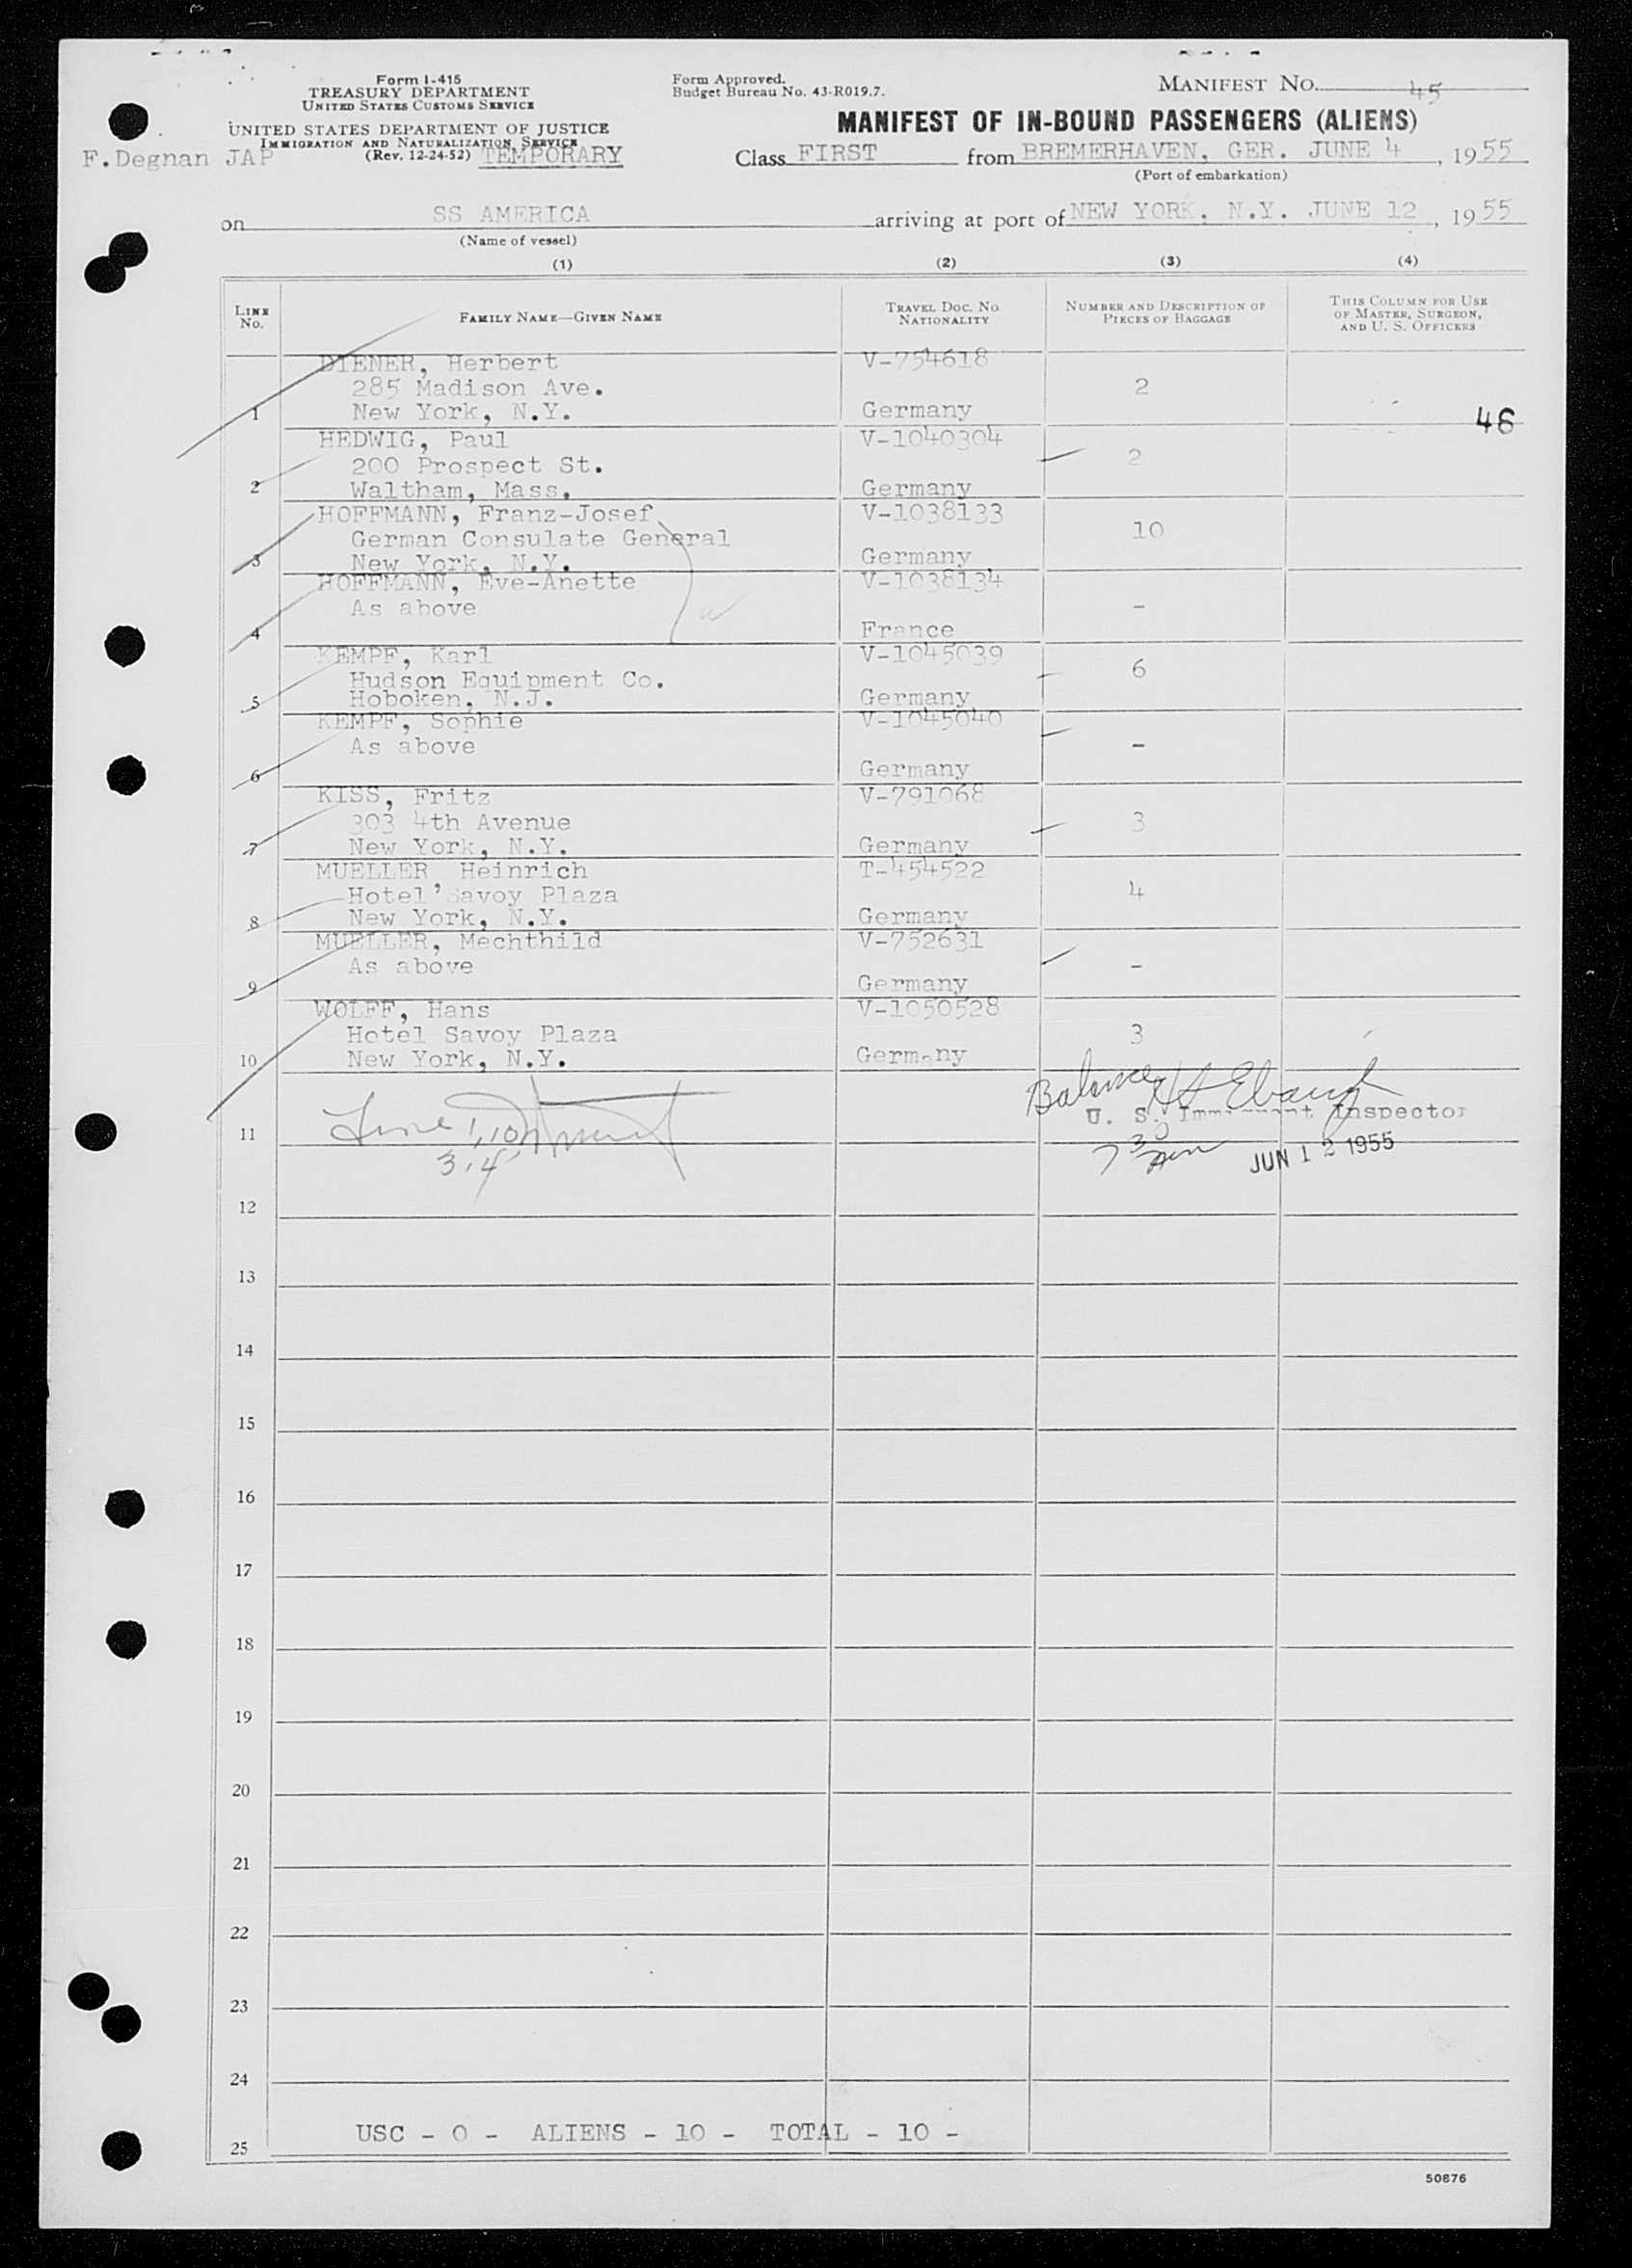 Form I-415
TREASURY DEPARTMENT
UNITED STATES CUSTOMS SERVICE
UNITED STATES DEPARTMENT OF JUSTICE
IMMIGRATION AND NATURALIZATION SERVICE
(Rev. 12-24-52) TEMPORARY
F.Degnan JAP
Form Approved.
Budget Bureau No. 43-R019.7.
MANIFEST NO. 45
MANIFEST OF IN-BOUND PASSENGERS (ALIENS)
Class FIRST from BREMERHAVEN, GER. JUNE 4, 1955
(Port of embarkation)
on SS AMERICA arriving at port of NEW YORK, N.Y. JUNE 12, 1955
(Name of vessel)
(1) (2) (3) (4)
LINE No. FAMILY NAME—GIVEN NAME TRAVEL DOC. NO. NATIONALITY NUMBER AND DESCRIPTION OF PIECES OF BAGGAGE THIS COLUMN FOR USE OF MASTER, SURGEON, AND U. S. OFFICERS
DIENER, Herbert V-754618
285 Madison Ave. 2
1 New York, N.Y. Germany 46
HEDWIG, Paul V-1040304
200 Prospect St. 2
2 Waltham, Mass. Germany
HOFFMANN, Franz-Josef V-1038133
German Consulate General 10
3 New York, N.Y. Germany
HOFFMANN, Eve-Anette V-1038134
As above -
4 France
KEMPF, Karl V-1045039
Hudson Equipment Co. 6
5 Hoboken, N.J. Germany
KEMPF, Sophie V-1045040
As above -
6 Germany
KISS, Fritz V-791068
303 4th Avenue 3
7 New York, N.Y. Germany
MUELLER, Heinrich T-454522
Hotel Savoy Plaza 4
8 New York, N.Y. Germany
MUELLER, Mechthild V-752631
As above -
9 Germany
WOLFF, Hans V-1050528
Hotel Savoy Plaza 3
10 New York, N.Y. Germany
Balance
U. S. Immigrant Inspector
Line 1, 10
11
3, 4
7 30
JUN 12 1955
12
13
14
15
16
17
18
19
20
21
22
23
24
USC - 0 - ALIENS - 10 - TOTAL - 10 -
25
50876